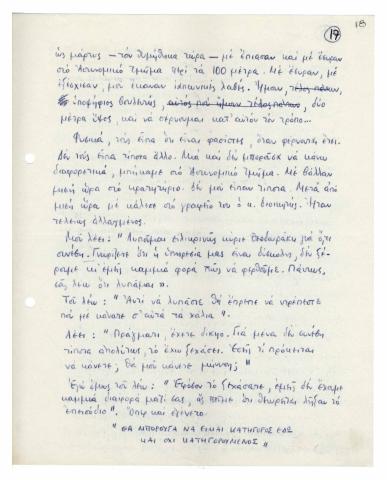 18
19
ὡς μάρτυς – τὸν θυμήθηκα τώρα – μὲ ἔπιασαν καὶ μὲ ἔσυραν
στὸ Ἀστυνομικὸ Τμῆμα περὶ τὰ 100 μέτρα. Μὲ ἔσυραν, μὲ
ἐξέσχισαν, μοῦ ἔκαναν λαβές. Ἤμουν, τέλος πάντων,
ὑποψήφιος βουλευτής, αὐτὸς ποὺ ἤμουν τέλος πάντων, δύο
μέτρα ὕψος, καὶ νὰ σέρνομαι κατ' αὐτὸν τὸν τρόπο...
Φυσικά, τοὺς εἶπα ὅτι εἶναι φασίστες, ὅταν φέρνονται ἔτσι.
Δὲν τοὺς εἶπα τίποτα ἄλλο. Μιὰ καὶ δὲν μποροῦσα νὰ κάνω
διαφορετικά, μπήκαμε στὸ Ἀστυνομικὸ Τμῆμα. Μὲ βάλανε
μισὴ ὥρα στὸ κρατητήριο. Δὲν μοῦ εἶπαν τίποτα. Μετὰ ἀπὸ
μισὴ ὥρα μὲ κάλεσε στὸ γραφεῖο του ὁ κ. διοικητής. Ἦταν
τελείως ἀλλαγμένος.
Μοῦ λέει: " Λυπᾶμαι εἰλικρινῶς κύριε Θεοδωράκη γιὰ ὅ,τι
συνέβη. Γνωρίζετε ὅτι ἡ ὑπηρεσία μας εἶναι δύσκολη, δὲν ξέ-
ραμε κι ἐμεῖς καμμιὰ φορὰ πῶς νὰ φερθοῦμε. Πάντως,
σᾶς λέω ὅτι λυπᾶμαι ".
Τοῦ λέω: " Ἀντὶ νὰ λυπᾶστε θὰ ἔπρεπε νὰ ντρέπεστε
ποὺ μὲ κάνατε σ' αὐτὰ τὰ χάλια ".
Λέει: " Πράγματι, ἔχετε δίκηο. Γιὰ μένα δὲν συνέβη
τίποτα ἀπολύτως, τὸ ἔχω ξεχάσει. Ἐσεῖς τί πρόκειται
νὰ κάνετε; Θὰ μοῦ κάνετε μήνυση; "
Ἐγὼ ὅμως τοῦ λέω: " Ἐφόσον τὸ ξεχάσατε, ἐμεῖς δὲν ἔχουμε
καμμιὰ διαφορὰ μαζί σας, ἂς ποῦμε ὅτι θεωρεῖται λῆξαν τὸ
ἐπεισόδιο ". Ὅπερ καὶ ἐγένετο.
" ΘΑ ΜΠΟΡΟΥΣΑ ΝΑ ΕΙΜΑΙ ΚΑΤΗΓΟΡΟΣ ΕΔΩ
ΚΑΙ ΟΧΙ ΚΑΤΗΓΟΡΟΥΜΕΝΟΣ "